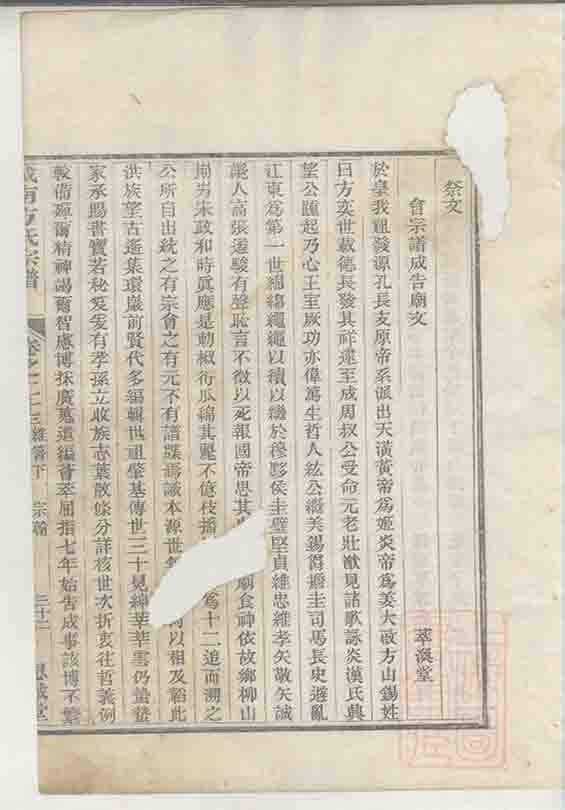 祭文
會宗譜成告廟文
萃渙堂
於皇我祖發源孔長支原帝系派出天潢黃帝為姬炎帝為姜大啟方山錫姓
曰方奕世載德長發其祥逮至成周叔公受命元老壯猷見諸歌詠炎漢氏興
望公滙起乃心王室厥功亦偉篤生哲人紘公繼美錫爵擔圭司馬長史避亂
江東為第一世綿綿繩繩以續以繼於穆黟侯圭璧堅貞維忠維孝矢敬矢誠
讒人高張逡駿有聲恥言不微以死報國帝思其 廟食神依故鄉柳山
崗旁宋政和時眞應是勅椒衍瓜綿其麗不億枝播 為十二追而溯之
公所自出統之有宗會之有元不有譜牒壽識本源世 以相及貉此
洪族望古遙集環巖前賢代多編輯世祖肇基傳世三十晃 莘莘雲仍蟄蟄
家承賜書寶若秘笈爰有孝孫立收族志葉散條分詳核世次折衷往哲義例
較備殫爾精神竭爾智慮博採廣蒐遺編薈萃屈指七年始告成事該博不繁
城南方氏宗譜
卷之二十三雜著下
宗譜
三十二
思誠堂